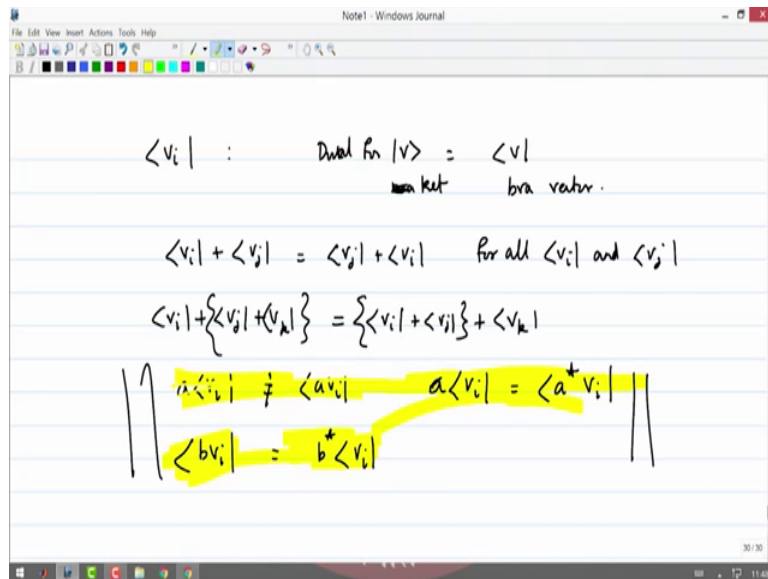 Note1 - Windows Journal
File Edit View Insert Actions Tools Help
B I
<vi| : Dual for |v> = <v|
ket bra vector.
<vi| + <vj| = <vj| + <vi| for all <vi| and <vj|
<vi| + {<vj| + <vk|} = {<vi| + <vj|} + <vk|
a<vi| ≠ <avi| a<vi| = <a* vi|
<bvi| = b* <vi|
30/30